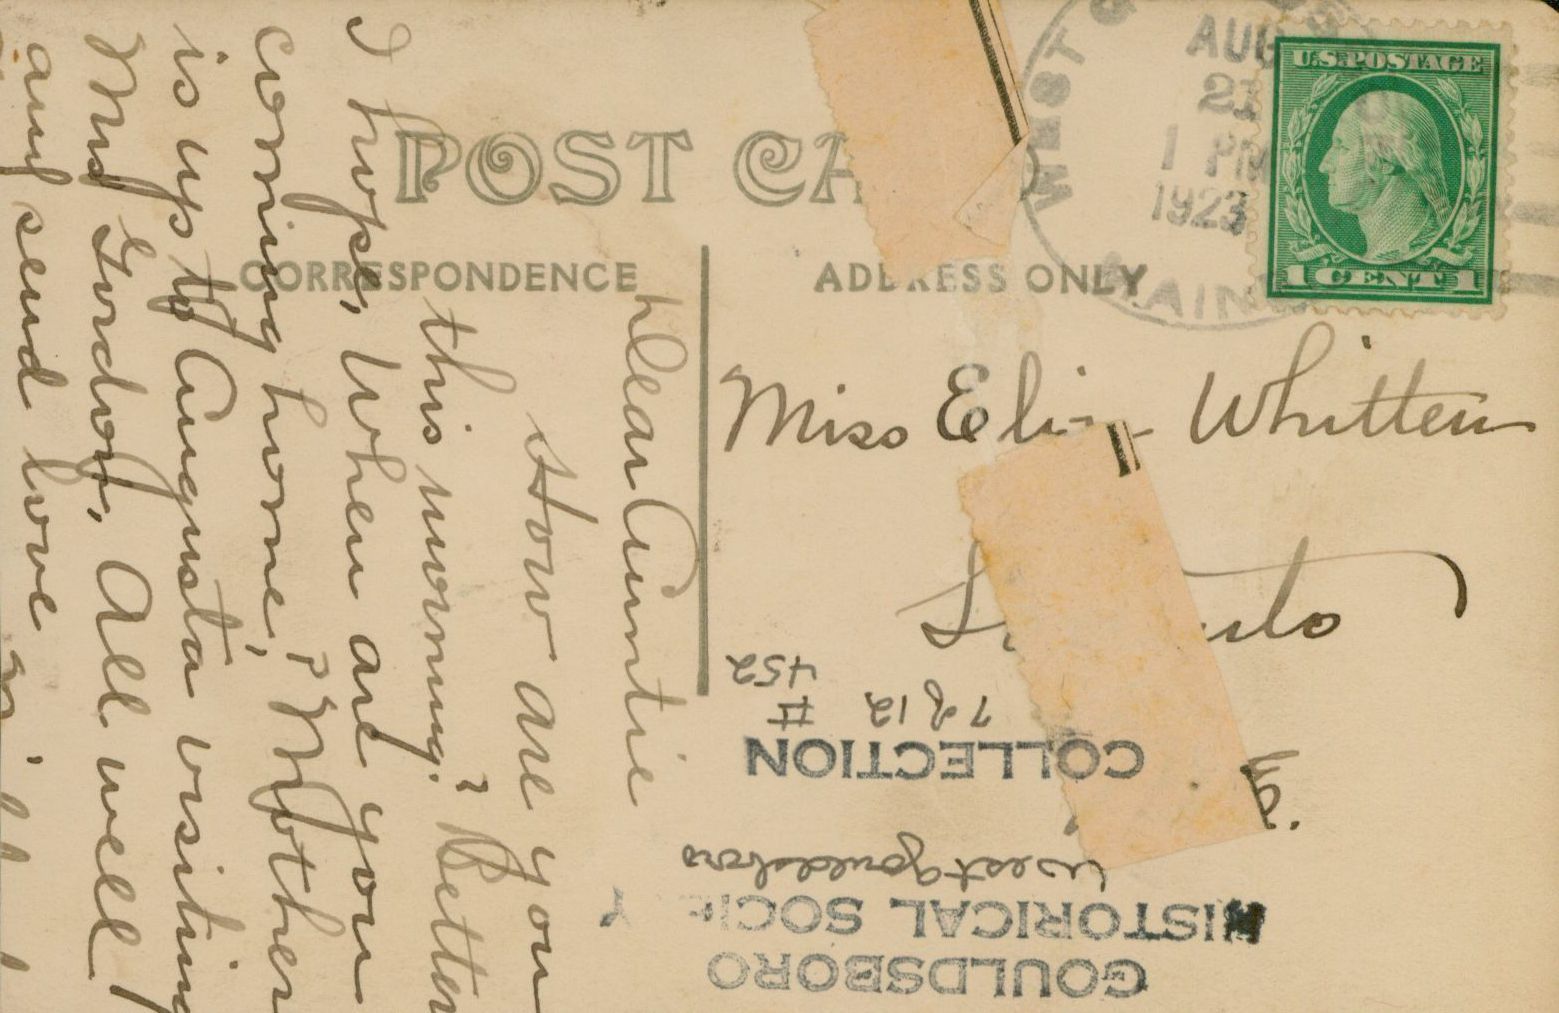 POST CA
CORRESPONDENCE
ADDRESS ONLY
WEST
AUG
21
1 PM
1923
MAINE
U.S. POSTAGE
1 CENT 1
Dear Auntie
How are you
this morning? Better
I hope, When are you
coming home? Mother
is up to Augusta visiting
Mrs Gordon, All well
and send love
Miss Eliza Whitten
GOULDSBORO
HISTORICAL SOCIE Y
West Gouldsboro
COLLECTION
7 of 12 #
452